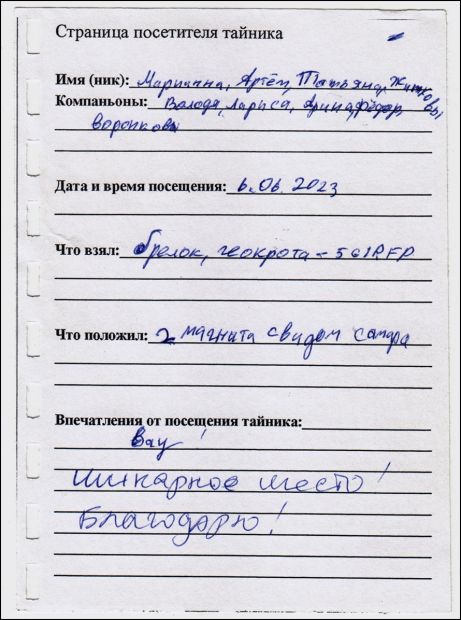 Страница посетителя тайника
Имя (ник): Марианна, Артём, Татьяна Житковы
Компаньоны: Володя, Лариса, Арина, Фёдор,
Воронковы
Дата и время посещения: 6.06.2023
Что взял: брелок, геокрота - 561RFP
Что положил: 2 магнита с видом
Впечатления от посещения тайника:
Вау!
Шикарное место!
Благодарю!